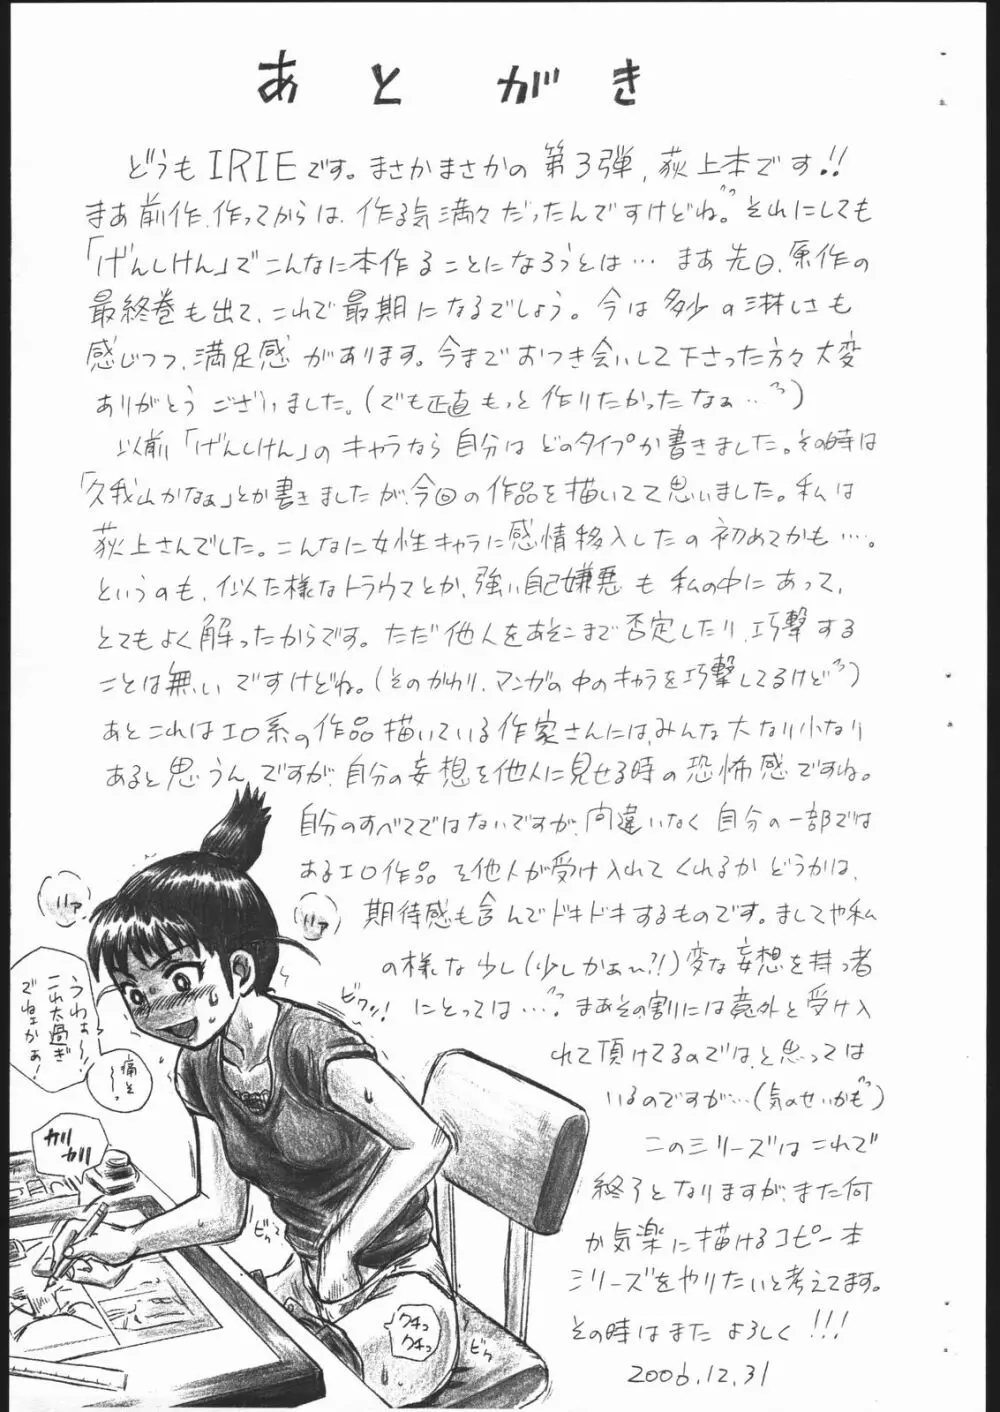 あとがき
どうもIRIEです。まさかまさかの第3弾、荻上本です!!
まあ前作、作ってからは、作る気満々だったんですけどね。それにしても
「げんしけん」でこんなに本作ることになろうとは… まあ先日、原作の
最終巻も出て、これで最期になるでしょう。今は多少の淋しさも
感じつつ、満足感があります。今までおつき会いして下さった方々大変
ありがとうございました。(でも正直もっと作りたかったなぁ…)
以前「げんしけん」のキャラなら自分はどのタイプか書きました。その時は
「久我山かなぁ」とか書きましたが、今回の作品を描いてて思いました。私は
荻上さんでした。こんなに女性キャラに感情移入したの初めてかも…。
というのも、似た様なトラウマとか、強い自己嫌悪も私の中にあって、
とてもよく解ったからです。ただ他人をあそこまで否定したり、巧撃する
ことは無いですけどね。(そのかわり、マンガの中のキャラを巧撃してるけど)
あとこれはエロ系の作品描いている作家さんには、みんな大なり小なり
あると思うんですが、自分の妄想を他人に見せる時の恐怖感ですね。
自分のすべてではないですが、間違いなく自分の一部では
あるエロ作品を他人が受け入れてくれるかどうかは、
期待感も含んでドキドキするものです。ましてや私
の様な少し(少しかぁ～?!)変な妄想を持つ者
にとっては…。まあその割には意外と受け入
れて頂けてるのでは、と思っては
いるのですが…(気のせいかも)
このシリーズはこれで
終了となりますが、また何
か気楽に描けるコピー本
シリーズをやりたいと考えてます。
その時はまたよろしく!!!
2006.12.31
うわぁ～!
これ太過ぎ
でねェかぁ!
痛そ～っ
カリカリ
ビクッ!
ビクッ
クチュ
クチュ
ビクッ